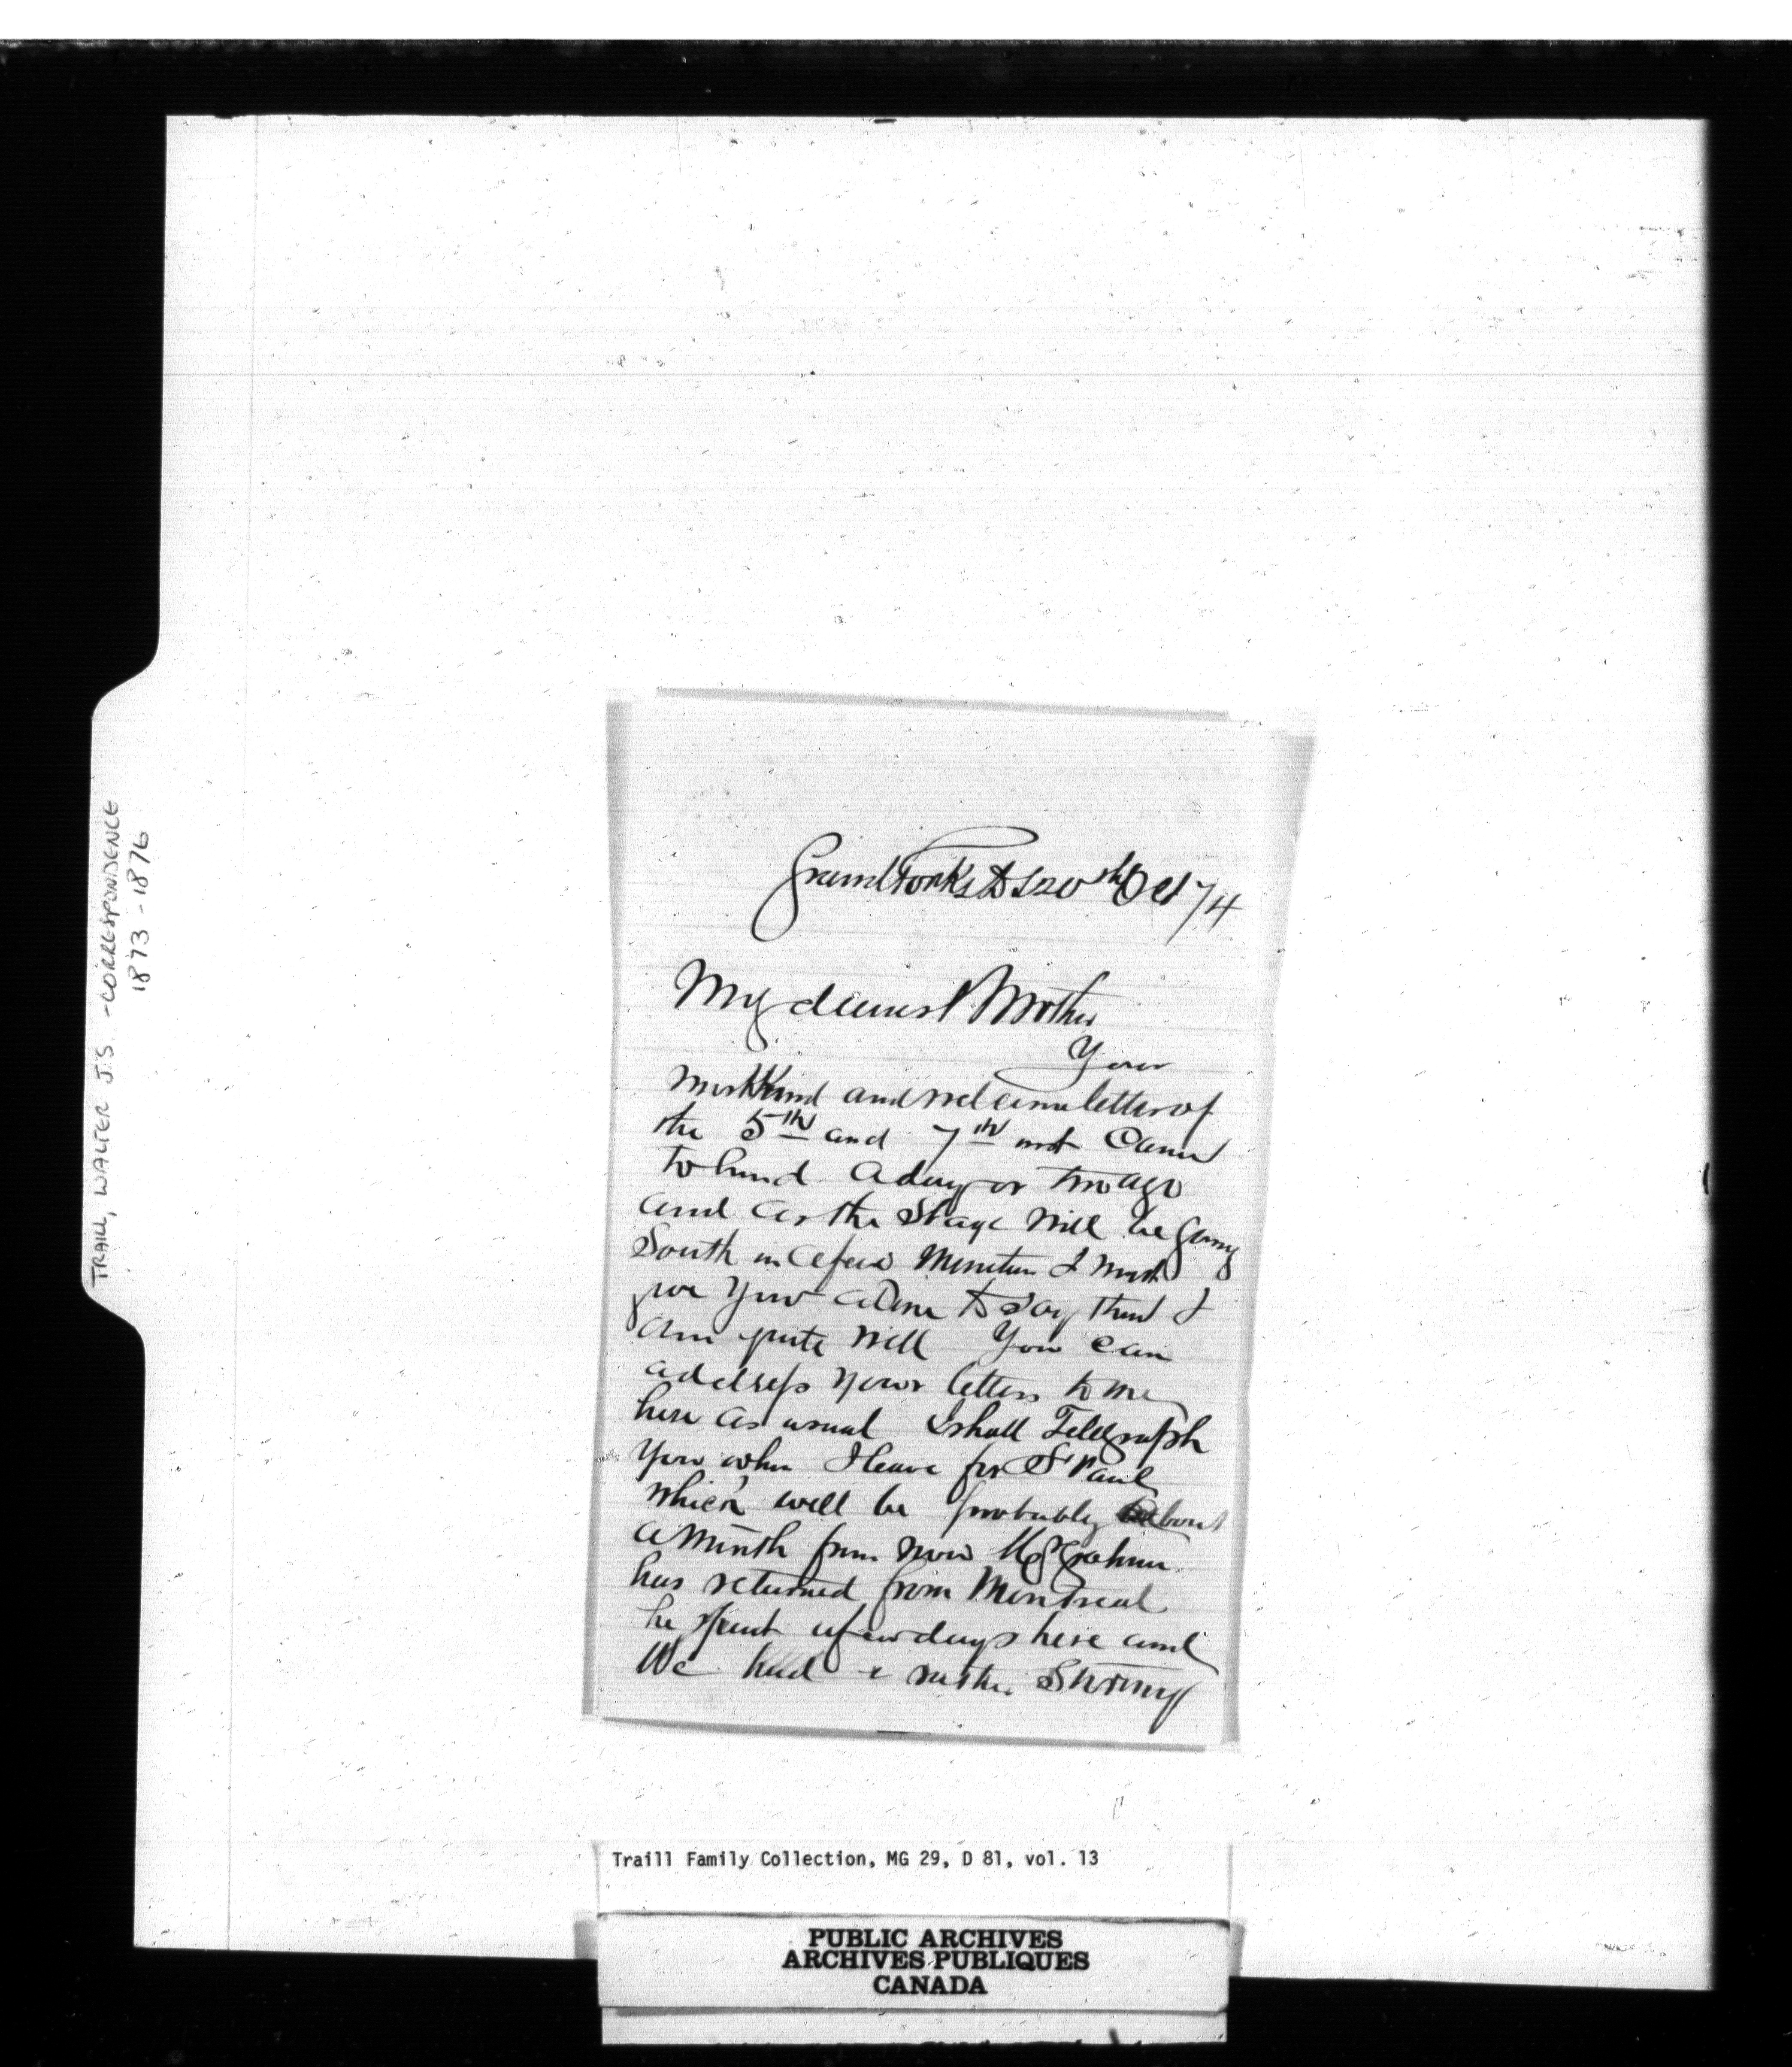 TRAILL, WALTER J.S. - CORRESPONDENCE
1873-1876
Grand Forks DT 20th Oct 74
My dearest Mother
Your
most kind and welcome letter of
the 5th and 7th inst Came
to hand a day or two ago
and as the Stage will be going
South in a few Minutes I must
give you a line to say that I
am quite well You can
address your letters to me
here as usual I shall Telegraph
you when I leave for St Paul
which will be probably about
a month from now Mr Graham
has returned from Montreal
he spent a few days here and
We had a rather Stormy
Traill Family Collection, MG 29, D 81, vol. 13
PUBLIC ARCHIVES
ARCHIVES PUBLIQUES
CANADA